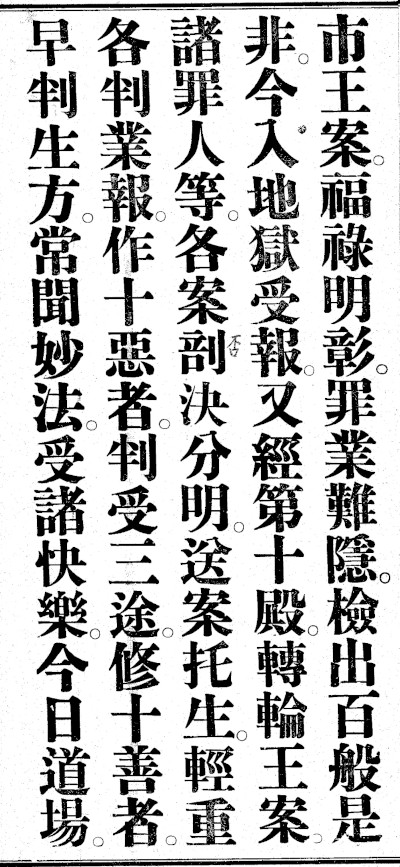 市王案。福祿明彰。罪業難隱。檢出百般是
非。今入地獄受報。又經第十殿。轉輪王案。
諸罪人等。各案剖決分明。送案托生。輕重
各判業報。作十惡者。判受三途。修十善者。
早判生方。常聞妙法。受諸快樂。今日道場。